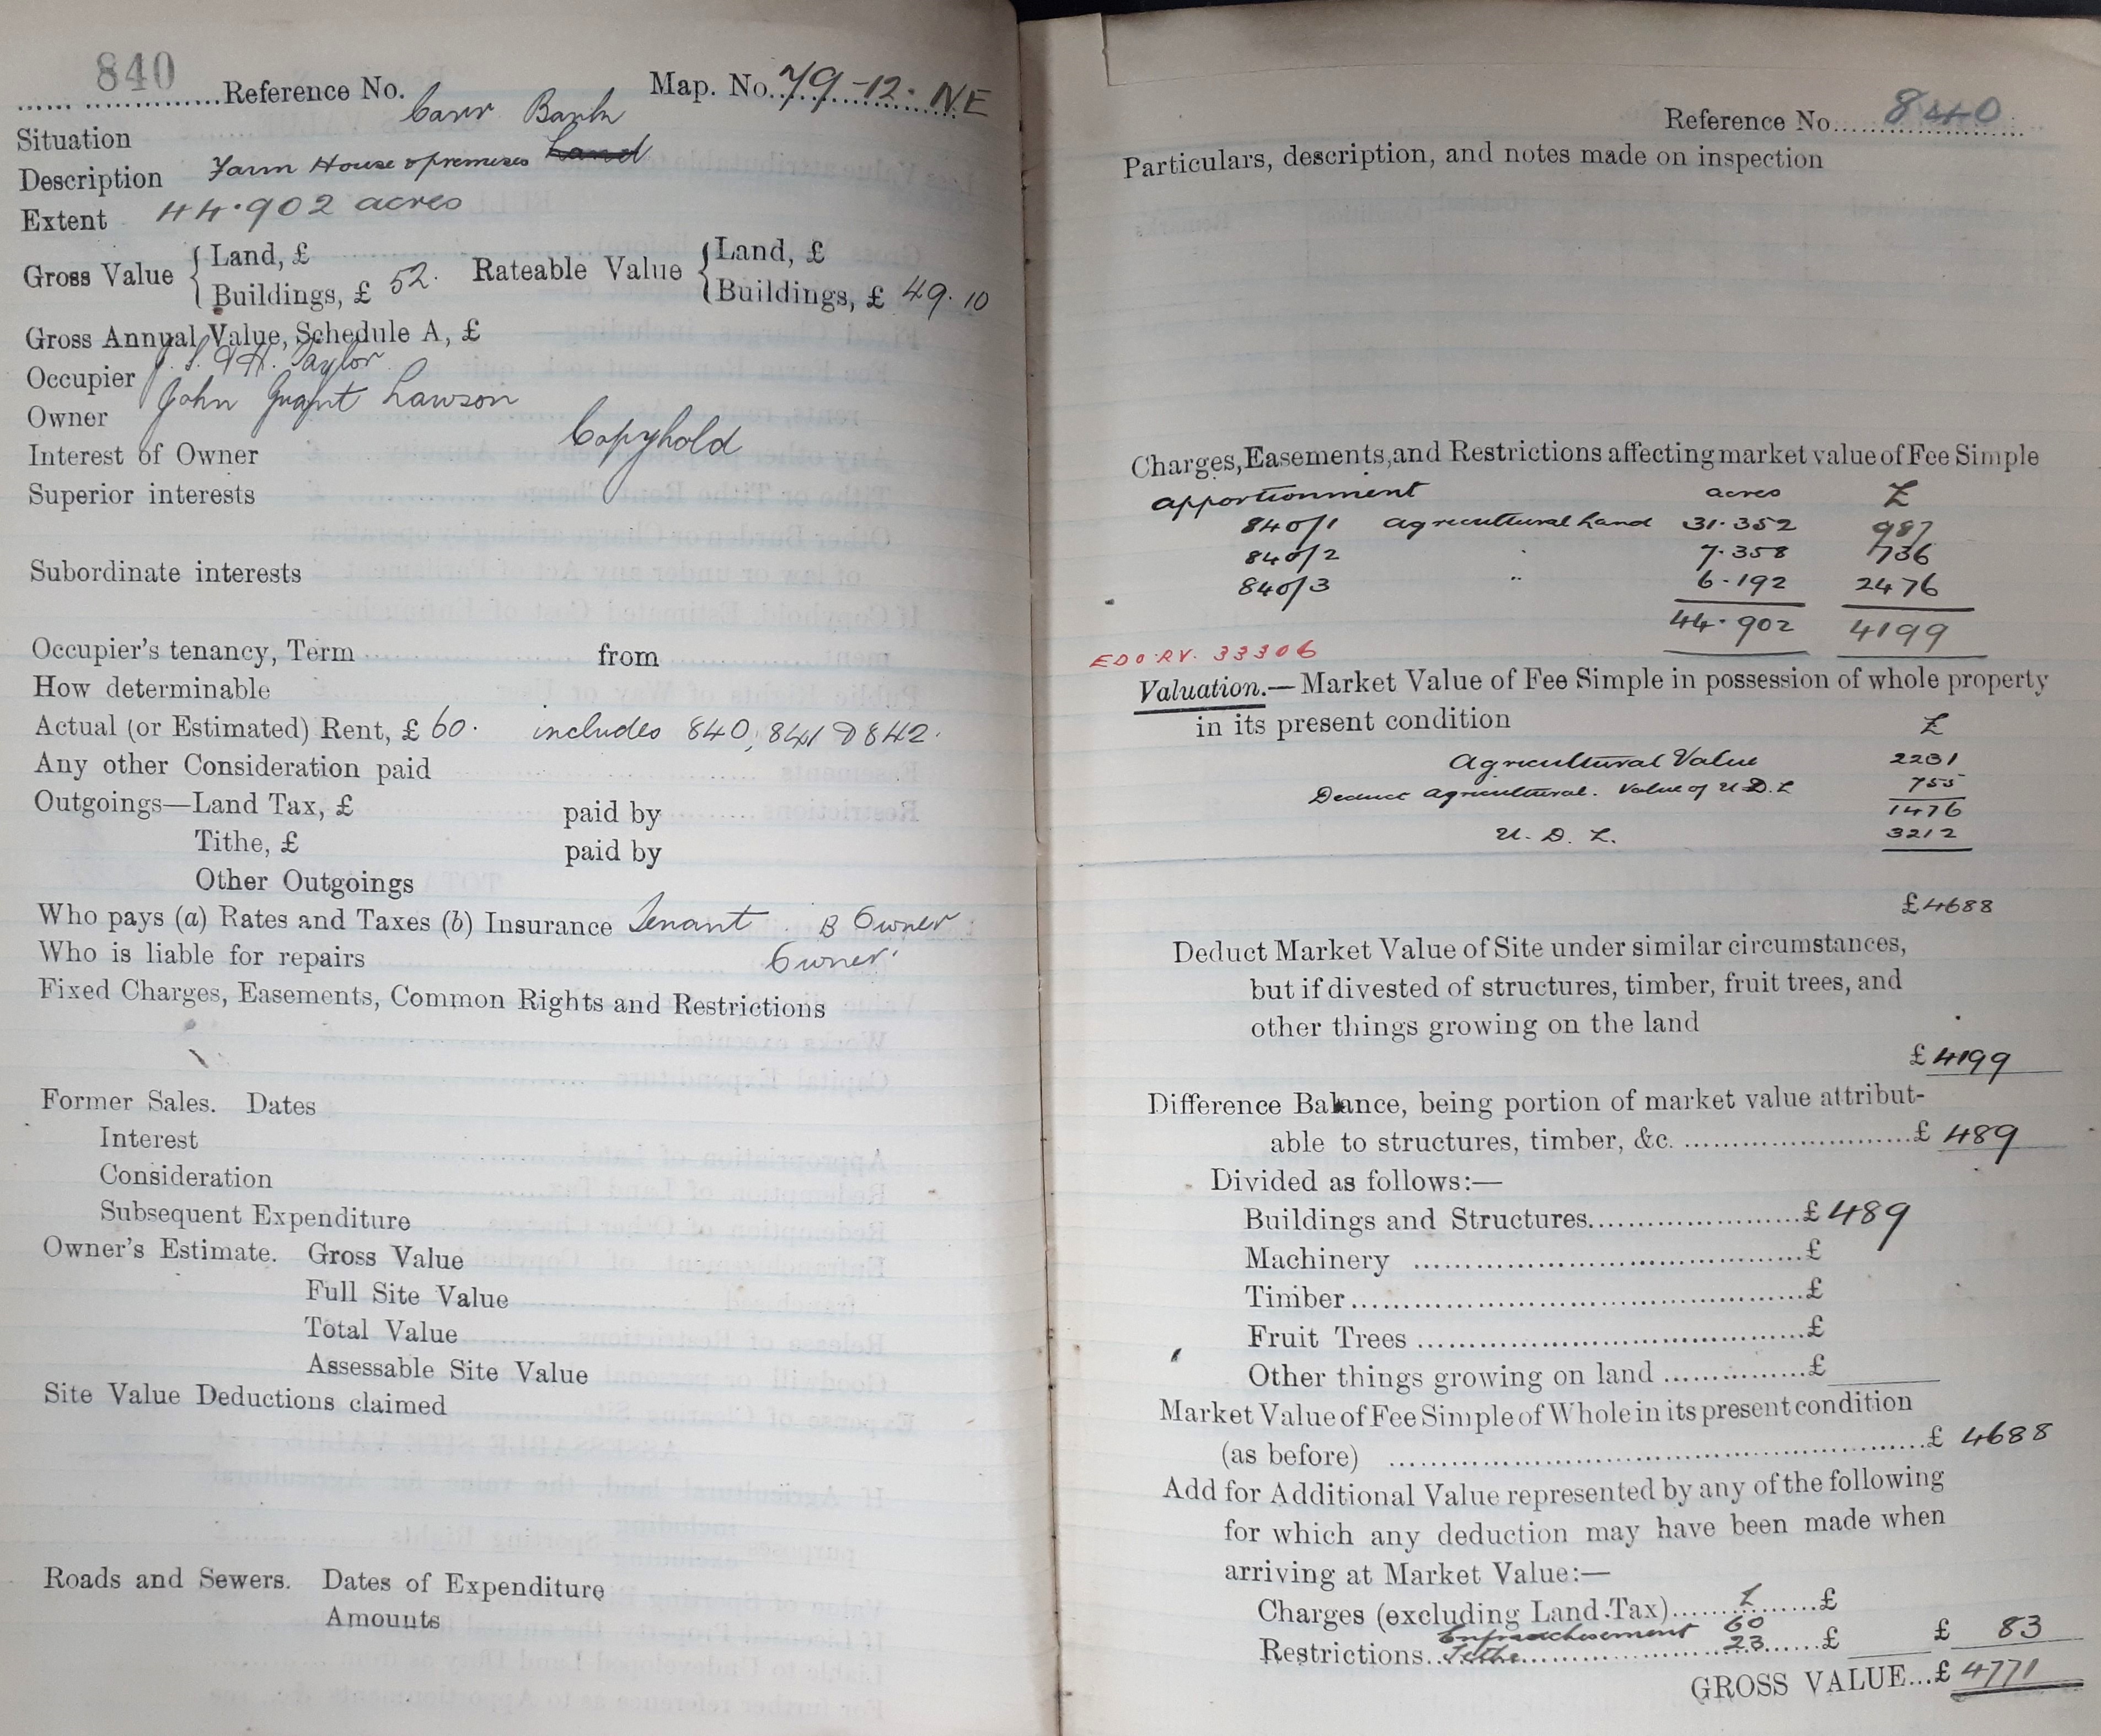 840
Reference No. Map. No. 79-12. NE
Situation Carr Bank
Description Farm House & premises Land
Extent 44.902 acres
Gross Value { Land, £ Rateable Value { Land, £
Buildings, £ 52. Buildings, £ 49.10
Gross Annual Value, Schedule A, £
Occupier J. S. & H. Taylor
Owner John Grant Lawson
Interest of Owner Copyhold
Superior interests
Subordinate interests
Occupier's tenancy, Term from
How determinable
Actual (or Estimated) Rent, £ 60. includes 840, 841 & 842.
Any other Consideration paid
Outgoings—Land Tax, £ paid by
Tithe, £ paid by
Other Outgoings
Who pays (a) Rates and Taxes (b) Insurance Tenant. B Owner
Who is liable for repairs Owner.
Fixed Charges, Easements, Common Rights and Restrictions
Former Sales. Dates
Interest
Consideration
Subsequent Expenditure
Owner's Estimate. Gross Value
Full Site Value
Total Value
Assessable Site Value
Site Value Deductions claimed
Roads and Sewers. Dates of Expenditure
Amounts
Reference No. 840
Particulars, description, and notes made on inspection
Charges, Easements, and Restrictions affecting market value of Fee Simple
apportionment acres £
840/1 agricultural Land 31.352 987
840/2 " 7.358 736
840/3 " 6.192 2476
44.902 4199
EDO. RV. 33306
Valuation.—Market Value of Fee Simple in possession of whole property
in its present condition £
Agricultural Value 2231
Deduct agricultural. Value of U.D.L 755
1476
U. D. L. 3212
£4688
Deduct Market Value of Site under similar circumstances,
but if divested of structures, timber, fruit trees, and
other things growing on the land
£4199
Difference Balance, being portion of market value attribut-
able to structures, timber, &c. £ 489
Divided as follows:—
Buildings and Structures £489
Machinery £
Timber £
Fruit Trees £
Other things growing on land £
Market Value of Fee Simple of Whole in its present condition
(as before) £ 4688
Add for Additional Value represented by any of the following
for which any deduction may have been made when
arriving at Market Value:—
Charges (excluding Land Tax) £ £
Enfranchisement 60
Restrictions Tithe 23 £ £ 83
GROSS VALUE...£ 4771